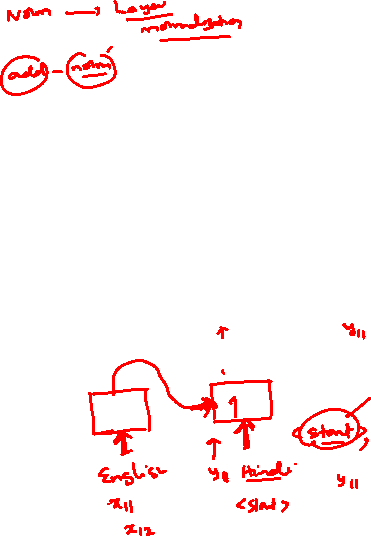 Norm → Layer
normalization
add - norm
y11
1
<start>
English y11 Hindi y11
x11 <start>
x12